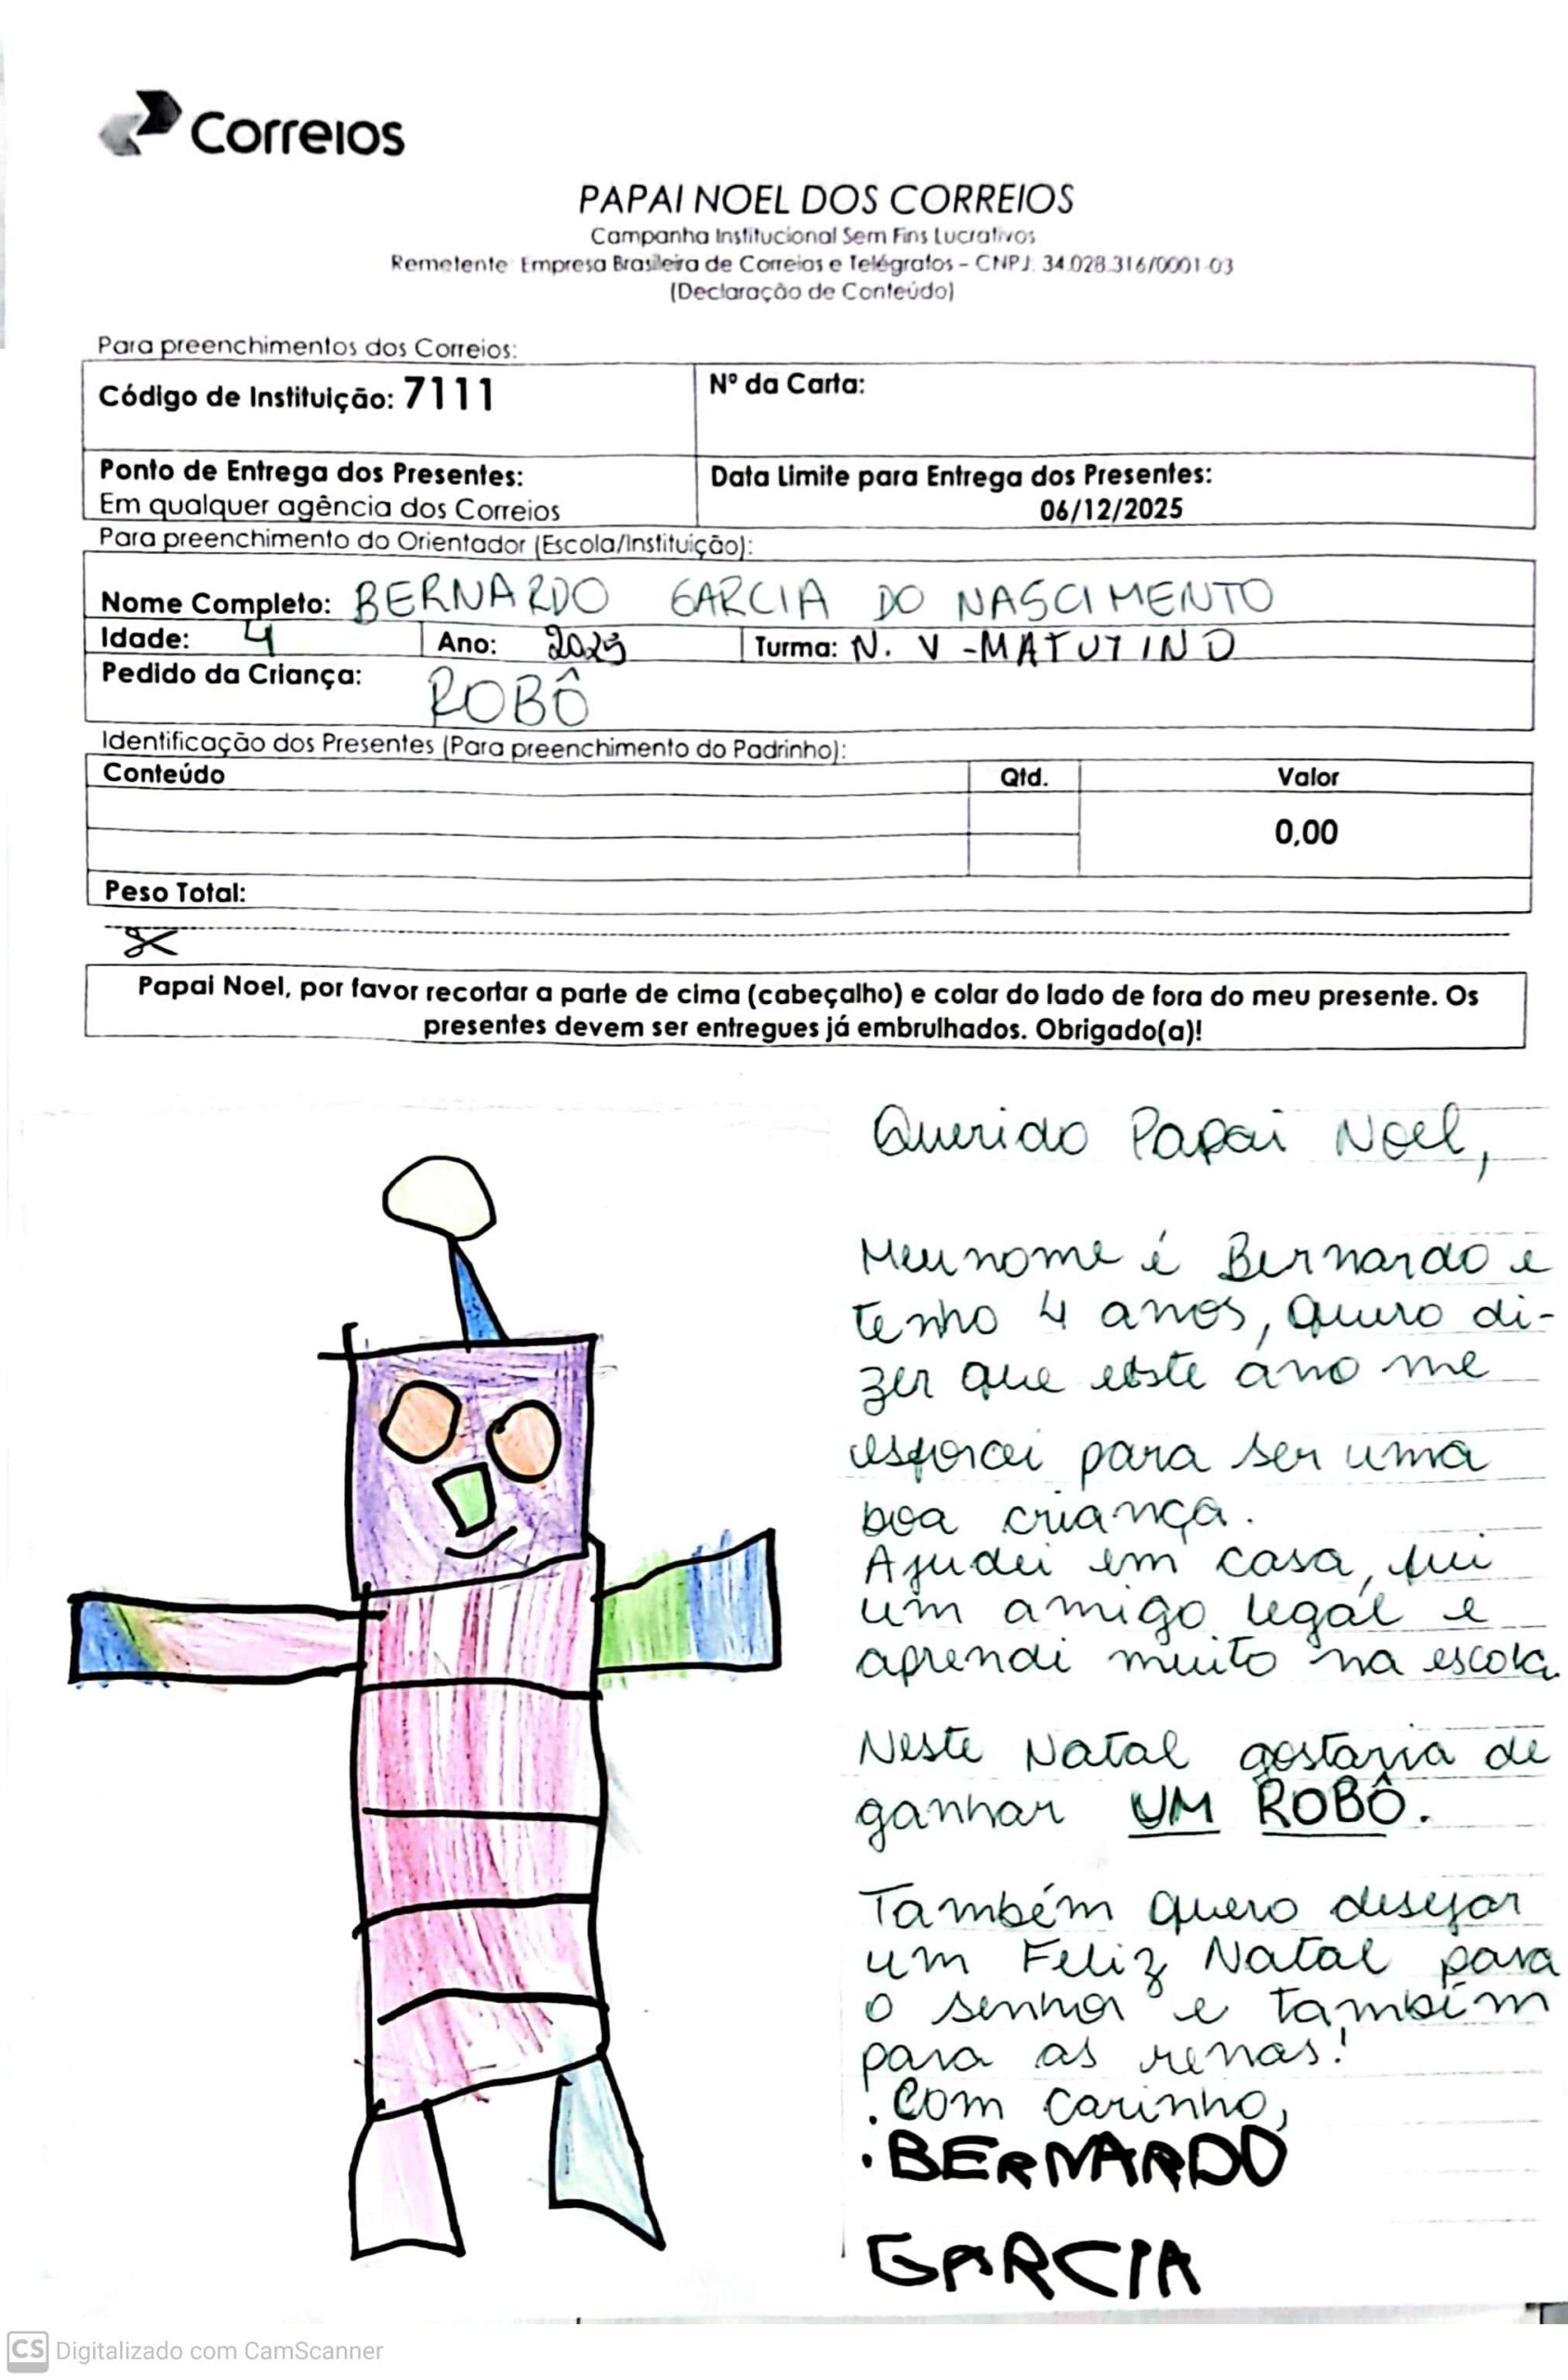 Correios
PAPAI NOEL DOS CORREIOS
Campanha Institucional Sem Fins Lucrativos
Remetente: Empresa Brasileira de Correios e Telégrafos – CNPJ: 34.028.316/0001-03
(Declaração de Conteúdo)
Para preenchimentos dos Correios:
Código de Instituição: 7111
Nº da Carta:
Ponto de Entrega dos Presentes:
Em qualquer agência dos Correios
Data Limite para Entrega dos Presentes:
06/12/2025
Para preenchimento do Orientador (Escola/Instituição):
Nome Completo: BERNARDO GARCIA DO NASCIMENTO
Idade: 4 Ano: 2025 Turma: N. V - MATUTINO
Pedido da Criança: ROBÔ
Identificação dos Presentes (Para preenchimento do Padrinho):
Conteúdo Qtd. Valor
0,00
Peso Total:
Papai Noel, por favor recortar a parte de cima (cabeçalho) e colar do lado de fora do meu presente. Os
presentes devem ser entregues já embrulhados. Obrigado(a)!
Querido Papai Noel,
Meu nome é Bernardo e
tenho 4 anos, Quero di-
zer que este ano me
esforcei para ser uma
boa criança.
Ajudei em casa, fui
um amigo legal e
aprendi muito na escola
Neste Natal gostaria de
ganhar UM ROBÔ.
Também quero desejar
um Feliz Natal para
o senhor e também
para as renas!
. Com carinho,
. BERNARDO
GARCIA
CS Digitalizado com CamScanner